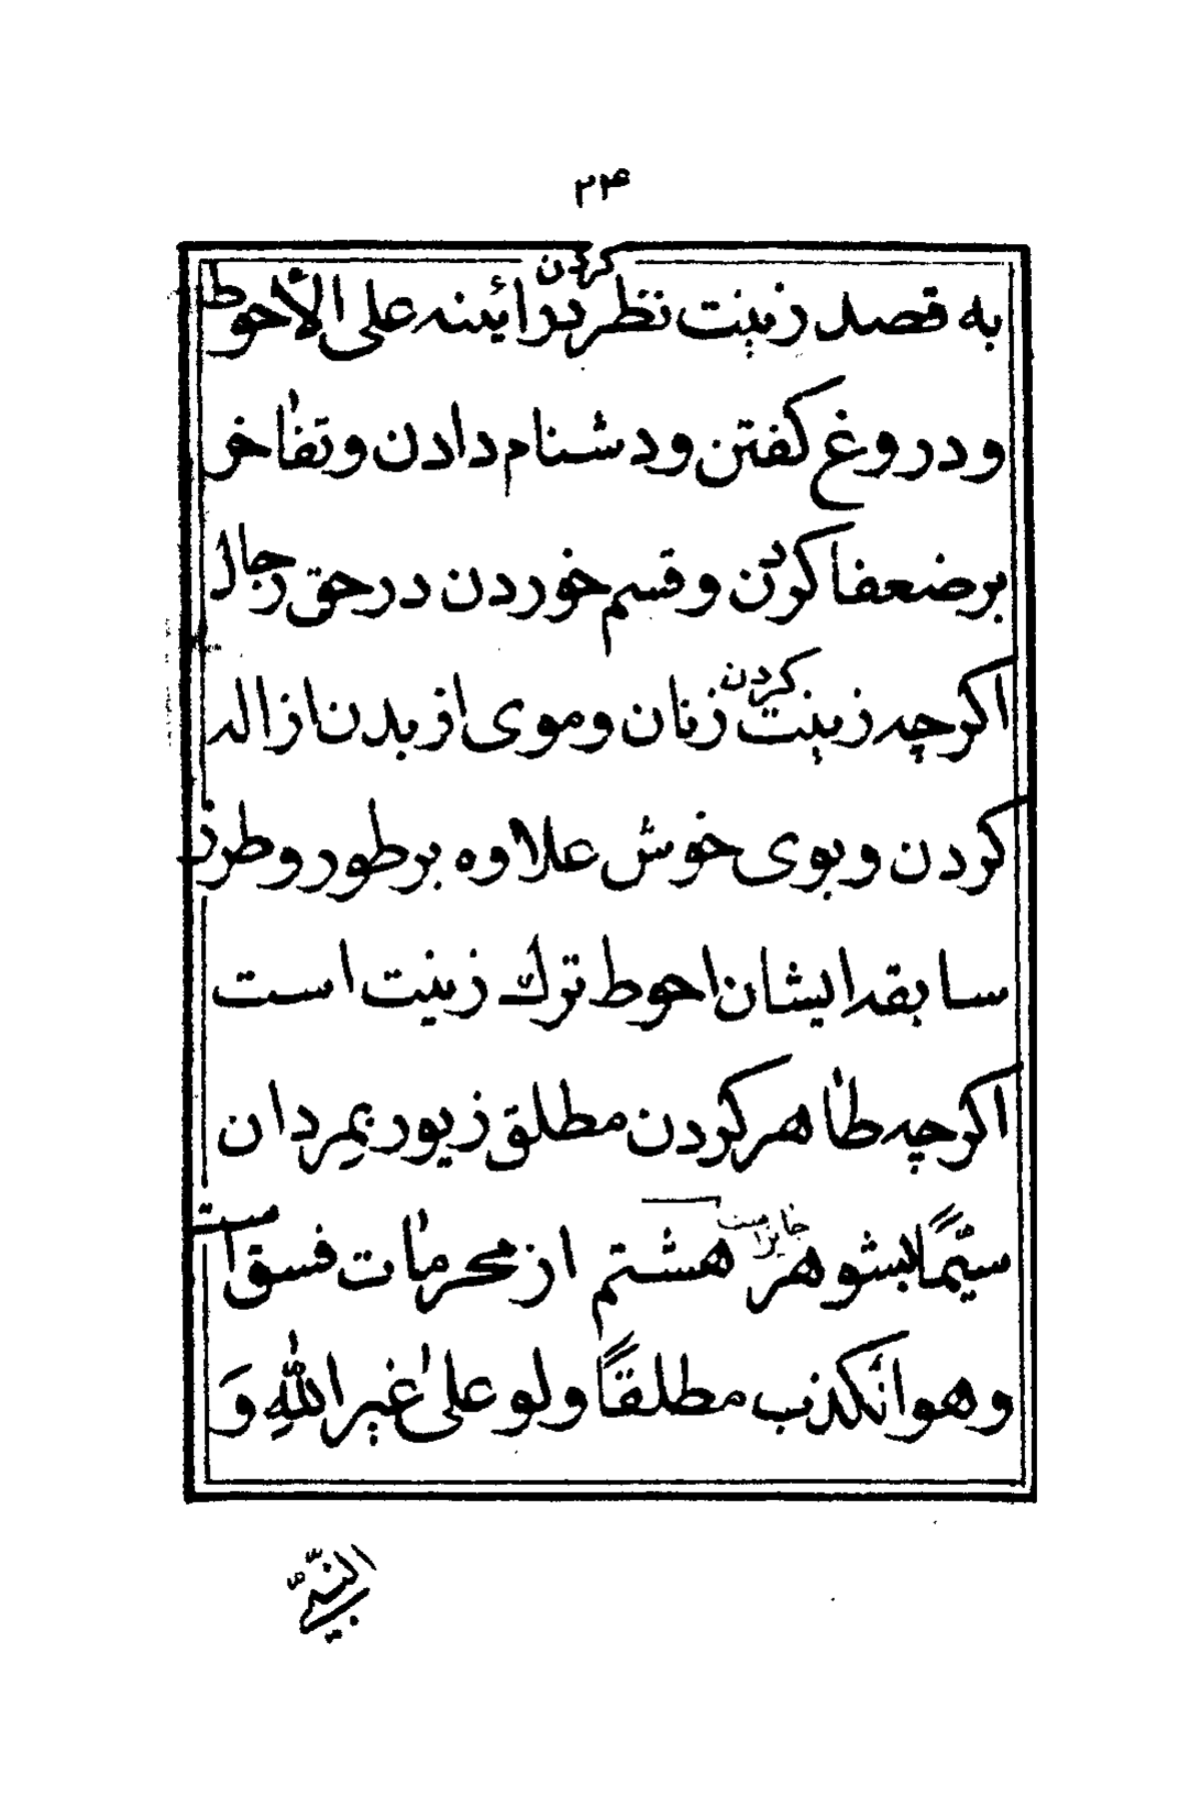 ۲۴
به قصد زینت نظر کردن در ائینه علی الأحوط
و دروغ کفتن و دشنام دادن و تفاخر
بر ضعفا کردن و قسم خوردن در حق رجال
اکرچه زینت کردن زنان و موی از بدن ازاله
کردن و بوی خوش علاوه بر طور و طرز
سابقه ایشان احوط ترک زینت است
اکرچه ظاهر کردن مطلق زیور بمردان
سیّما بشوهر جایز است هشتم از محرمات فسق است
و هو الکذب مطلقاً و لو علی غیر اللهِ وَ
النبیّ